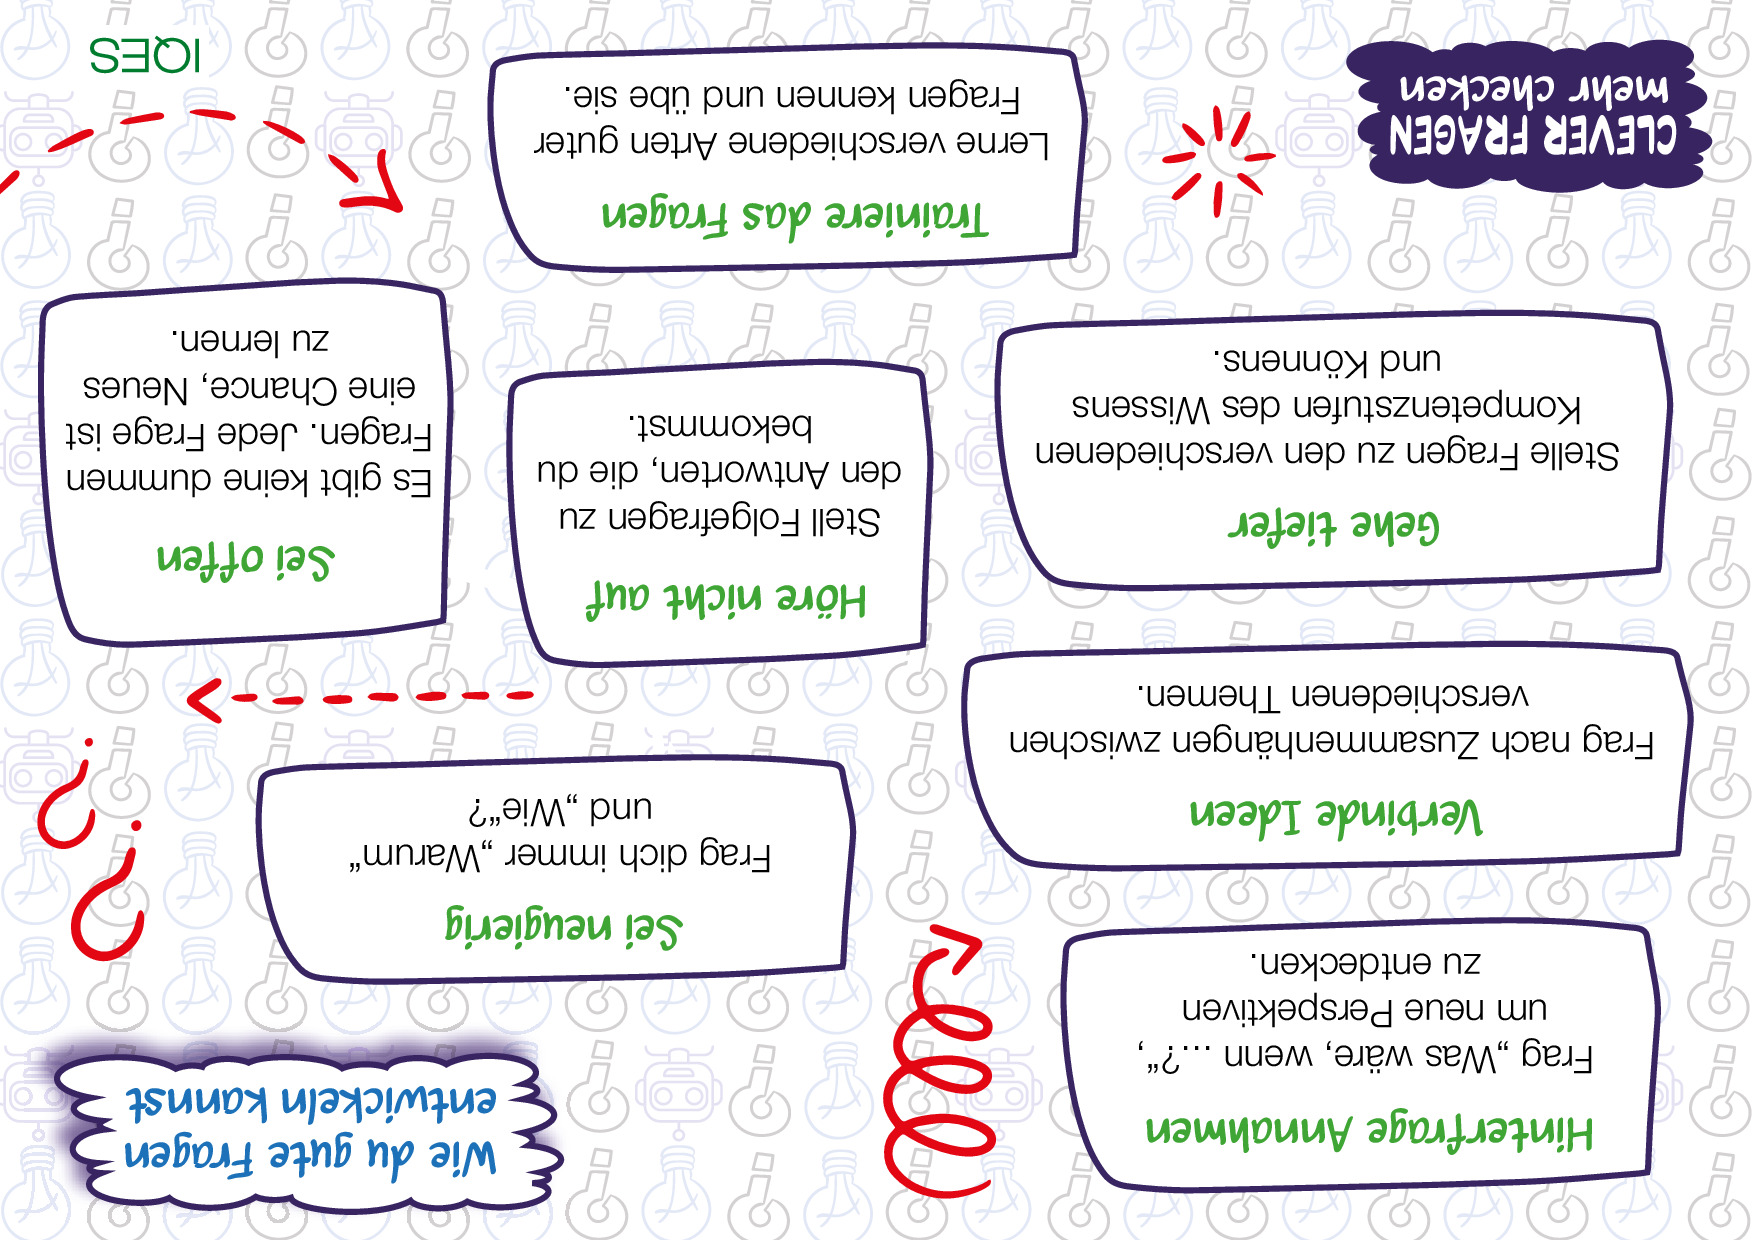 Wie du gute Fragen
entwickeln kannst
Hinterfrage Annahmen
Frag „Was wäre, wenn …?“,
um neue Perspektiven
zu entdecken.
Sei neugierig
Frag dich immer „Warum“
und „Wie“?
Verbinde Ideen
Frag nach Zusammenhängen zwischen
verschiedenen Themen.
Höre nicht auf
Stell Folgefragen zu
den Antworten, die du
bekommst.
Sei offen
Es gibt keine dummen
Fragen. Jede Frage ist
eine Chance, Neues
zu lernen.
Gehe tiefer
Stelle Fragen zu den verschiedenen
Kompetenzstufen des Wissens
und Könnens.
Trainiere das Fragen
Lerne verschiedene Arten guter
Fragen kennen und übe sie.
CLEVER FRAGEN
mehr checken
IQES